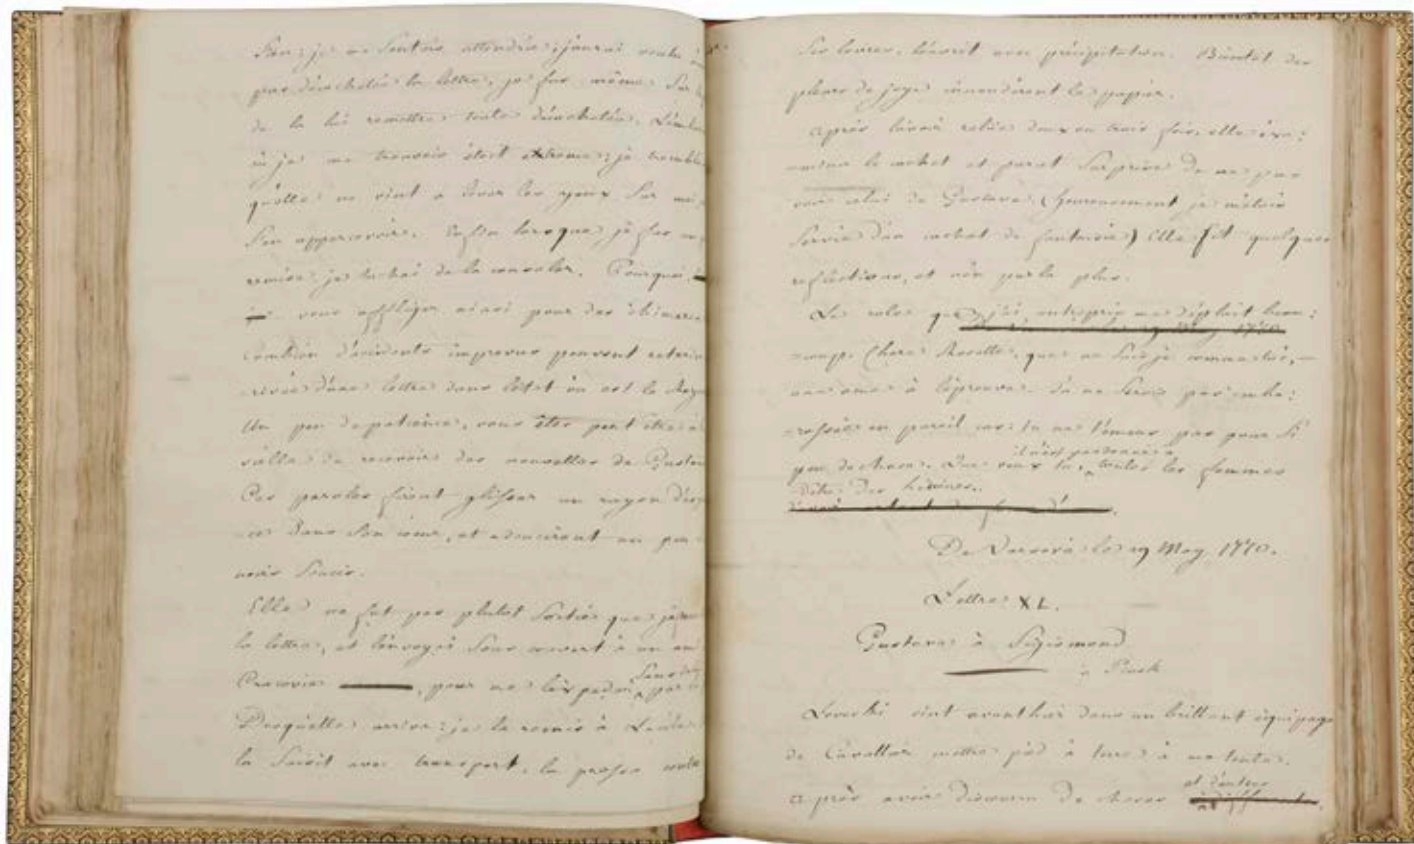 Sein: je me sentois attendrie; j'aurai voulu
pas décacheter la lettre, je fus même sur
de la lui remettre toute décachetée. L'émb
où je me trouvois étoit extreme; je trembl
qu'elle ne vint à lever les yeux sur moi,
s'en appercevoir. Enfin lorsque je fus
remise je tachai de la consoler. Pourquoi
vous affliger ainsi pour des chimeres
Combien d'accidents imprevus peuvent retar
=rivée d'une lettre dans l'état où est le Roy
Un peu de patience, vous êtes peut être à
veille de recevoir des nouvelles de Gustav
Ces paroles firent glisser un rayon d'esp
=ce dans son coeur, et adoucirent un peu
noirs soucis.
Elle ne fut pas plutot sortie que
la lettre, et l'envoyai sous couvert à un am
Cracovie, pour me l'éxpedier
Desqu'elle arriva: je la remis à Lucile
la saisit avec transport, la pressa contre
ses levres, l'ouvrit avec précipitation. Bientot des
pleurs de joye inondérent le papier.
Après l'avoir relüe deux ou trois fois, elle éxa=
=mina le cachet et parut surprise de ne pas
voir celui de Gustave (heureusement je m'étois
servie d'un cachet de fantaisie) Elle fit quelques
refléctions, et n'en parla plus.
Le role que j'ai entrepris me déplait beau=
=coup. Chere Rosette, que ne suis je comme toi,
une ame à l'épreuve. Tu ne serois pas emba=
=rassée en pareil cas: tu ne t'émeus pas pour si
peu de chose. Que veux tu, il n'est pas donné à toutes les femmes
d'être des héroïnes.
De Varsovie le 19 May 1770.
Lettre XL.
Gustave à Sigismond
à Pinsk
Loveski vint avant hier dans un brillant équipage
de Cavallier mettre pied à terre à ma tente.
Après avoir discouru de choses et d'autres